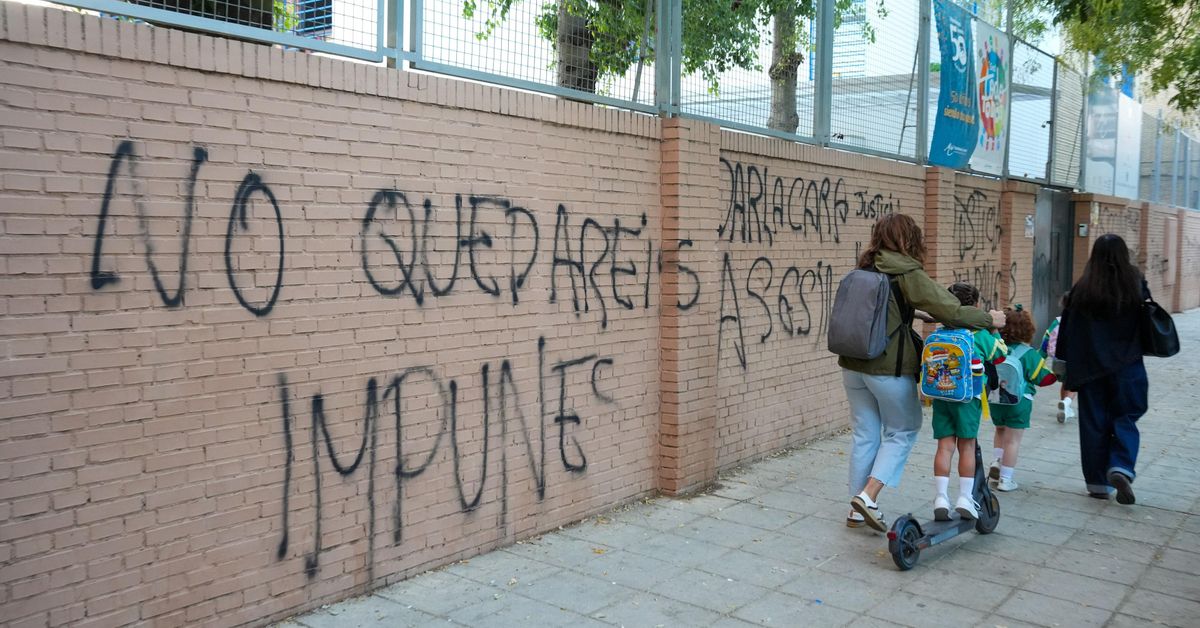 NO QUEDAREIS
IMPUNES
DARIA CARA
JUSTICIA
ASESIN
50 años
siendo
JUSTICIA